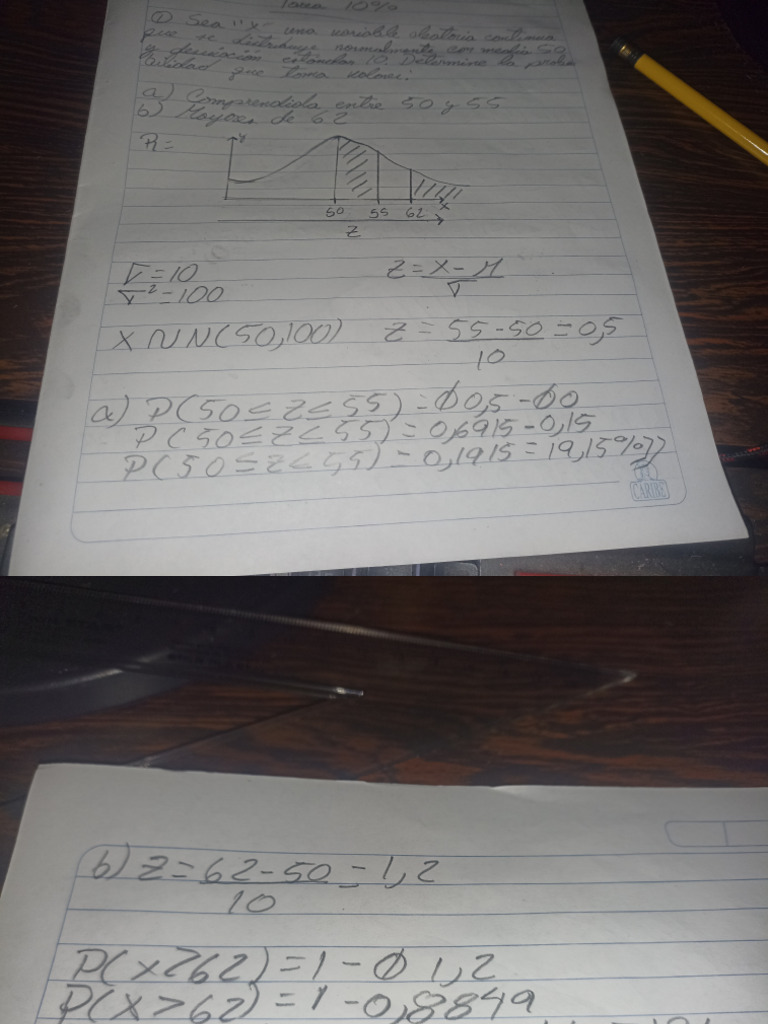 Tarea 10%
① Sea "x" una variable aleatoria continua
que se distribuye normalmente con media 50
y desviación estándar 10. Determine la proba
bilidad que toma valores:
a) Comprendida entre 50 y 55
b) Mayores de 62
R=
y
50 55 62 x
Z
√=10
√²=100
Z = x - M
√
X ~ N(50,100) Z = 55-50 = 0,5
10
a) P(50 ≤ Z ≤ 55) = Ø0,5 - Ø0
P(50 ≤ Z ≤ 55) = 0,6915 - 0,15
P(50 ≤ Z ≤ 5,5) = 0,1915 = 19,15%
CARIBE
b) Z = 62 - 50 = 1,2
10
P(x>62) = 1 - Ø 1,2
P(x>62) = 1 - 0,8849